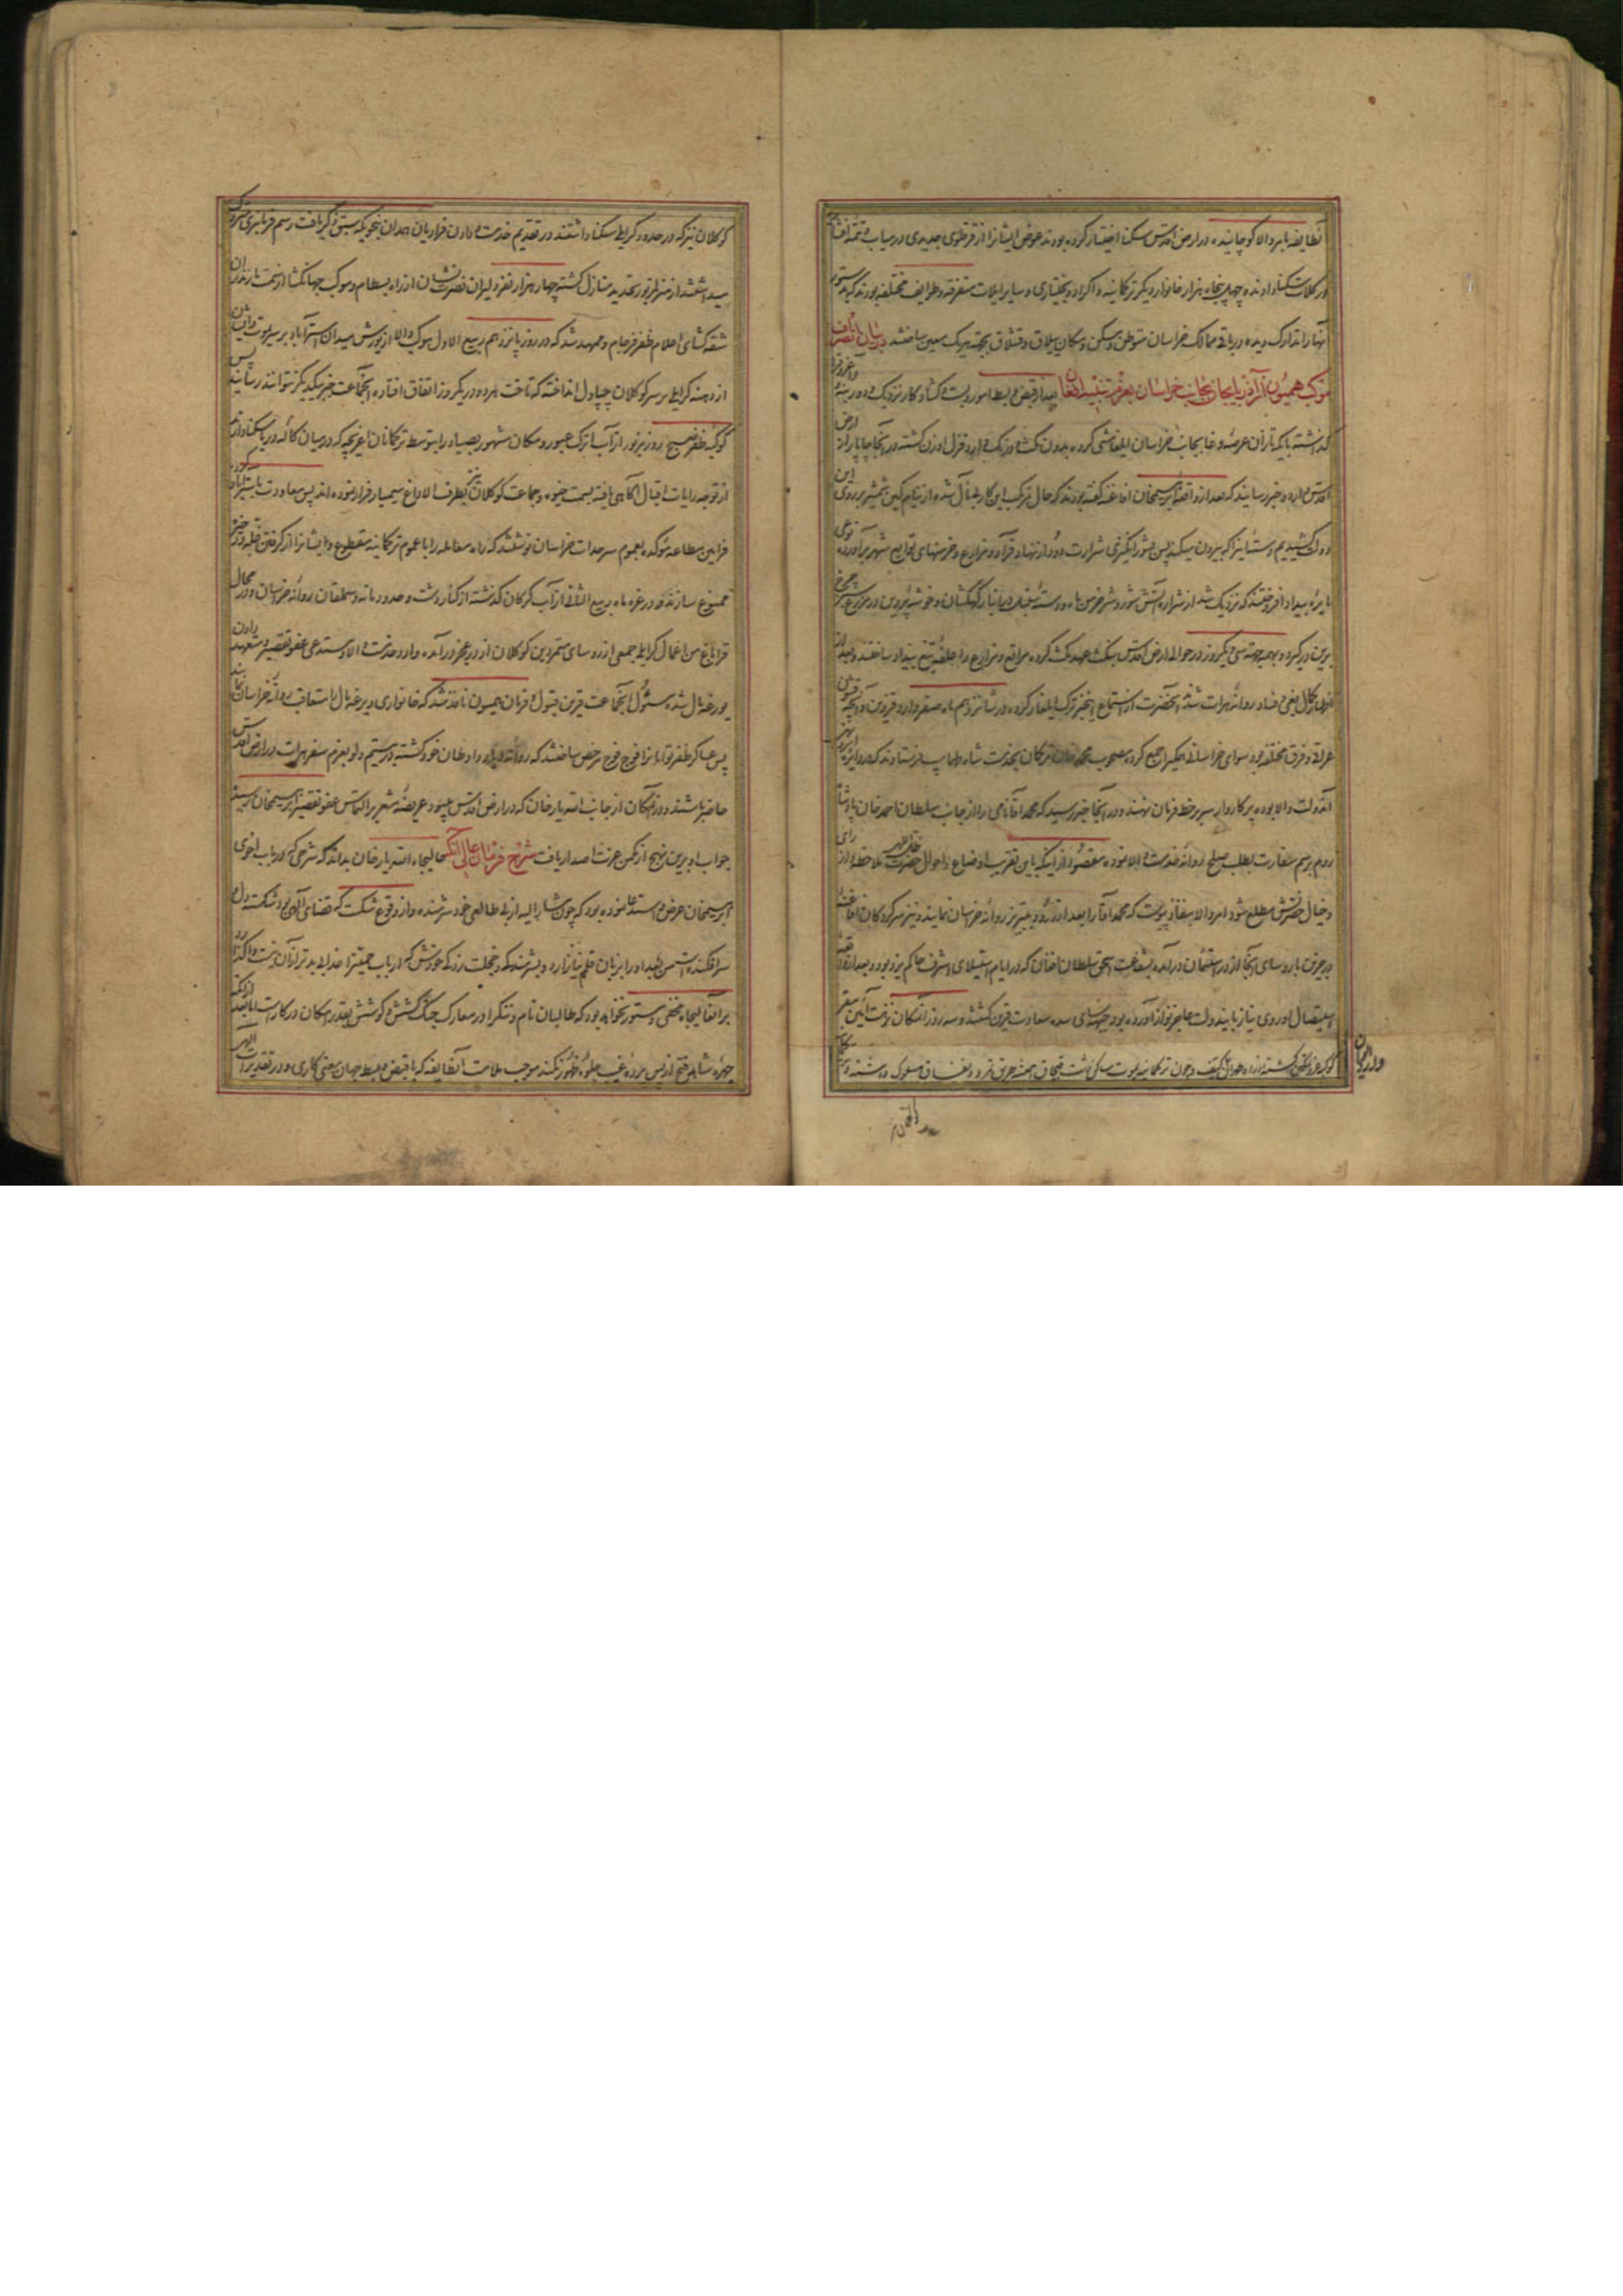 آنطایفه بامر والا کوچانیده در ارض اقدس سکنا اختیار کرده بودند عوض ایشان را از قرخلوی جدیدی در میاب و تتمه افشار
در کلات سکنا دادند و چهل پنجاه هزار خانوار دیگر ترکمانیه و اکراد و بختیاری و سایر ایلات متفرقه و طوایف مختلفه بودند که بدستور
آنها را تدارک دیده در باقی ممالک خراسان متوطن و مسکن و مکان ییلاق و قشلاق بجهة هریک معین ساختند در بیان انصراف
موکب همیون از آذربایجان بجانب خراسان بعزم تنبیه افغان بعد از قبض و بسط امور و بست و گشاد کار نزدیک و دور بنه و آغروق را
گذاشته با یکه تازان عرصه وغا بجانب خراسان ایلغامشی کرده بدون مکث و درنگ وارد قزل اوزن گشته در آنجا چاپار از ارض
اقدس وارد و خبر رسانید که بعد از واقعه ابرهیمخان افاغنه گفته بودند که حال مرتکب این کار بی مآل شده از نیام کین شمشیر بر روی این
دولت کشیدیم دسته اینرا که بیرون میکند پس بشور انگیزی شرارت دود از نهاد قرا و مزارع و خرمنهای توابع شهر برآورده نوعی
نایره بیداد افروختند که نزدیک شد از شراره آتش شور و شر خرمن ماه و دسته سنبله در انبار کهکشان و خوشه پروین در مزرع چرخ
برین درگیرد و بهمه جهة سی و یکروز در حوالی ارض اقدس بنکث عهد مکث کرده مراتع و مزارع را علف تیغ بیداد ساختند و بعد از
اظهار کمال بغی و فساد روانه هرات شدند آنحضرت از استماع اینخبر ترک ایلغار کرده در شانزدهم ماه صفر وارد قزوین و آنچه قشون
عراق و فرق مختلفه بود سوای خراسانی یکسر اجمع کرده مصحوب محمد خان ترکمان بخدمت شاه طهماسب فرستادند که در دایره
آندولت والا بوده پرکاروار سر بر خط فرمان نهند و در آنجا خبر رسید که محمد آقا نامی را از جانب سلطان احمد خان پادشاه
روم برسم سفارت بطلب صلح روانه خدمت والا نموده مقصود از اینکه باین تقریب اوضاع و احوال حضرت ظل الله ملاحظه و از رای
و خیال حضرتش مطلع شود امر والا بنفاذ پیوست که محمد آقا را بعد از ورود بتبریز روانه خراسان نمایند و نیز سرکردگان افاغنه
در جزین با روسای آنجا از در استیمان درآمده بشفاعت اسحق سلطان افغان که در ایام استیلای اشرف حاکم یزد بود و بعد از
استیصال او روی نیاز باین دولت عاجز نواز آورده بود جبهه سای سده سعادت قرین گشتند و سه روز آنمکان نزهت آئین مقر
کوکبه عز و تمکین گشته وچون ترکمانیه یموت ساکن دشت قبچاق همیشه طریق تمرد و نفاق مسلوک داشته
کوکلان نیز که در حدود گرایلی سکنا داشتند در تقدیم خدمت و دادن فراریان همدان بنحویکه سبق ذکر یافت رسم فرمانبری متروک
میداشتند از منزل مزبور تجدید منازل گشته چهار هزار نفر دلیران نصرت نشان از راه بسطام و موکب جهانگشا از سمت مازندران
شقه گشای اعلام ظفر فرجام و ممهد شد که در روز پانزدهم ربیع الاول موکب والا از یورش میدان استرآباد بر سر یموت و ایشان
از دهنه گرایلی بر سر کوکلان چپاول انداخته که تاخت هر دو در یکروز اتفاق افتاده آنجماعت خبر بیکدیگر نتوانند رسانید پس
کوکبه ظفر صبح روز مزبور از آب اترک عبور و مکان مشهور بصیاد را بتوسط ترکمانان
از توجه رایات اقبال آگاهی یافته بسمت خیوه و جماعت کوکلان نیز بطرف الاداغ سیمبار فرار نموده اند پس معاودت باستراباد کرده
فرامین مطاعه موکده بعموم سرحدات خراسان نوشتند که راه معامله را با عموم ترکمانیه مقطوع و ایشانرا از گرفتن غله و ذخیره
ممنوع سازند و در غره ماه ربیع الثانی از آب گرگان گذشته از کنار دشت و حدود مانه و سملقان روانه خراسان و در محال
قراباغ من اعمال گرایلی جمعی از روسای متمردین کوکلان از در عجز درآمده وارد خدمت والا و مستدعی عفو تقصیر و متعهد دادن
یورغه مال شده مسئول آنجماعت قرین قبول و فرمان همیون نافذ شد که خانواری و یرغه مال باستعاقب روانه خراسان نمایند
پس عساکر ظفر توامانرا فوج فوج مرخص ساختند که روانه دیار و اوطان خود گشته در بیستم دلو بعزم سفر هرات در ارض اقدس
حاضر باشند و در آنمکان از جانب الله یار خان که در ارض اقدس میبود عریضه مشعر بر التماس عفو تقصیر ابرهیمخان رسید
جواب او برین نهج از مکمن عزت اصدار یافت شرح فرمان عالی آنکه عالیجاه الله یار خان بداند که شرحی که در باب اخوی
ابرهیمخان عرض و استدعا نموده بود که چون مشارالیه از بی طالعی خود شرمنده و از وقوع شکست که قضای الهی بود شکسته دل و
سرافکنده است من بعد او را بزبان قلم نیازارد و بشرمندگی و خجلت زدگی خودش که ارباب حمیت را عذابی بدتر از آن نیست واگذارد
بر آنعالیجاه مخفی و مستور نخواهد بود که طالبان نام و ننگ را در معارک جنگ کشش و کوشش بقدر امکان در کار است اما بعد از آنکه
چهره شاهد فتح از پس پرده غیب جلوه ظهور نکند موجب ملامت آنطایفه که با قبض و بسط جهان معنی کاری و در تقدیرات الهی